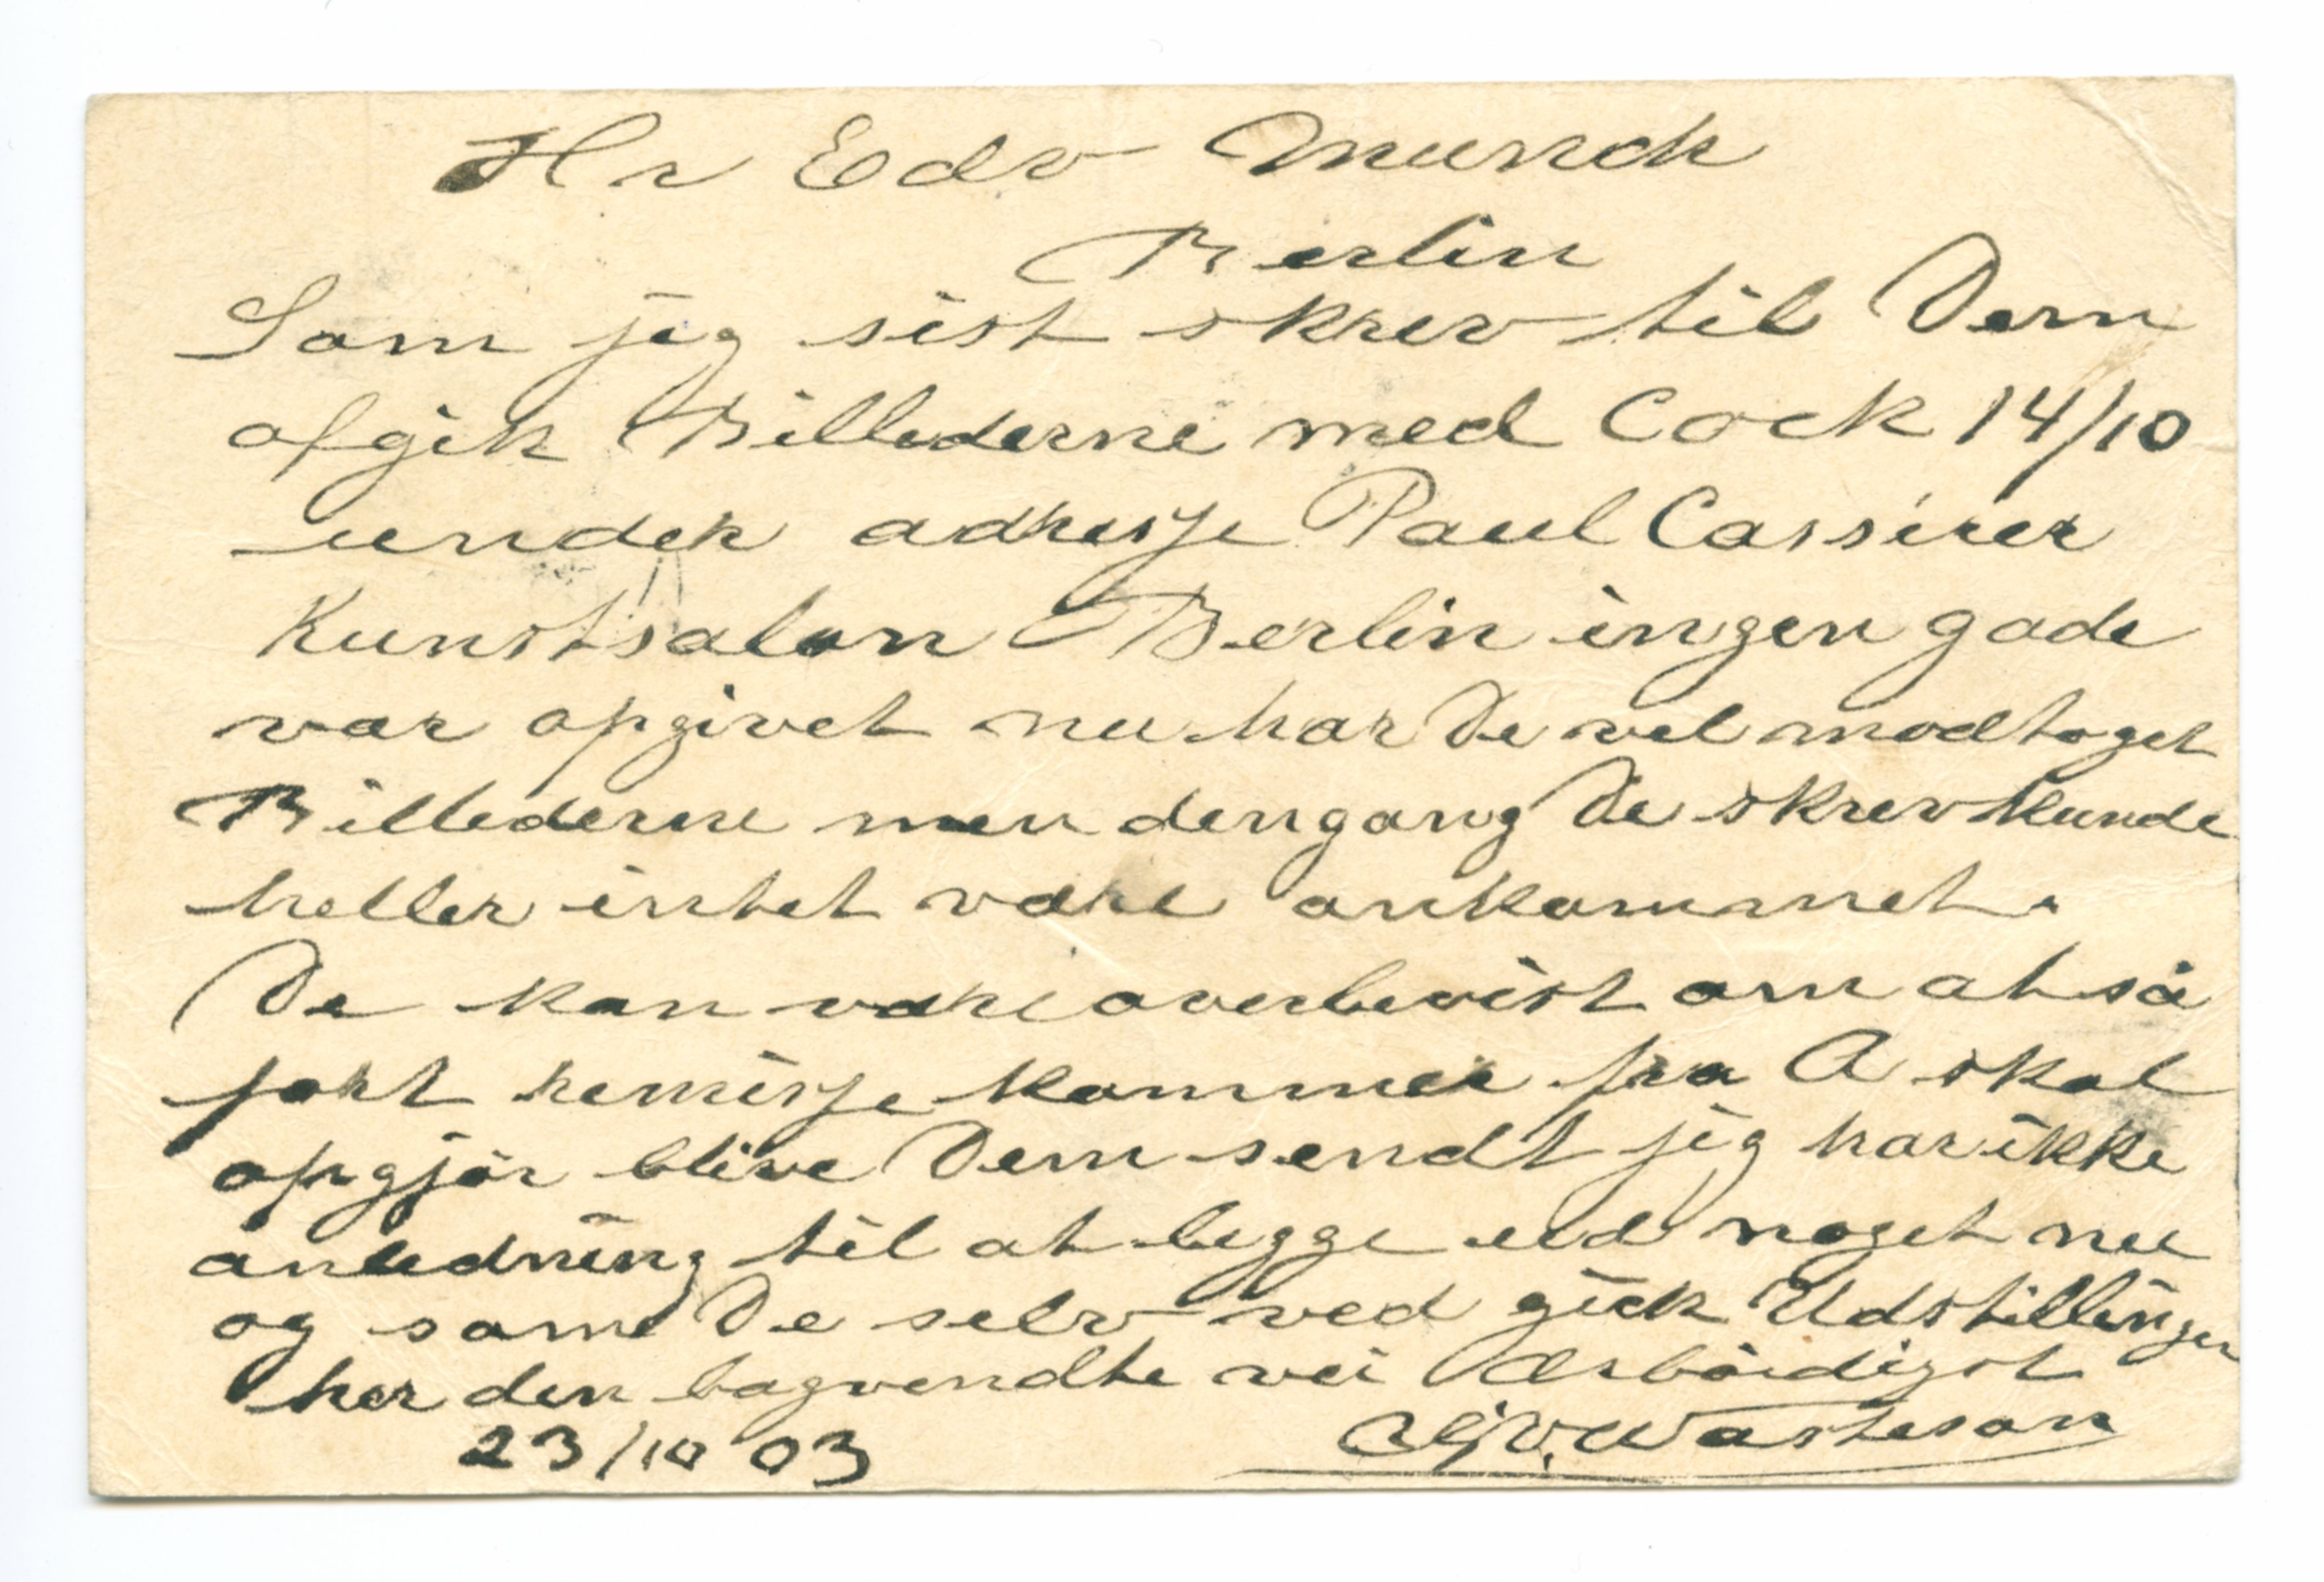 Hr Edv Munch
Berlin
Som jeg sist skrev til Dem
afgik Billederne med Cock 14/10
under adresse Paul Cassirer
Kunstsalon Berlin ingen gade
var opgivet nu har De vel modtaget
Billederne men dengang De skrev kunde
heller intet være ankommet.
De kan være overbevist om at så
fort remisse kommer fra A skal
opgjör blive Dem sendt jeg har ikke
anledning til at legge ud noget nu
og som De selv ved gick Udstillingen
her den bagvendte vei Ærbödigst
23/10 03 Wasteson